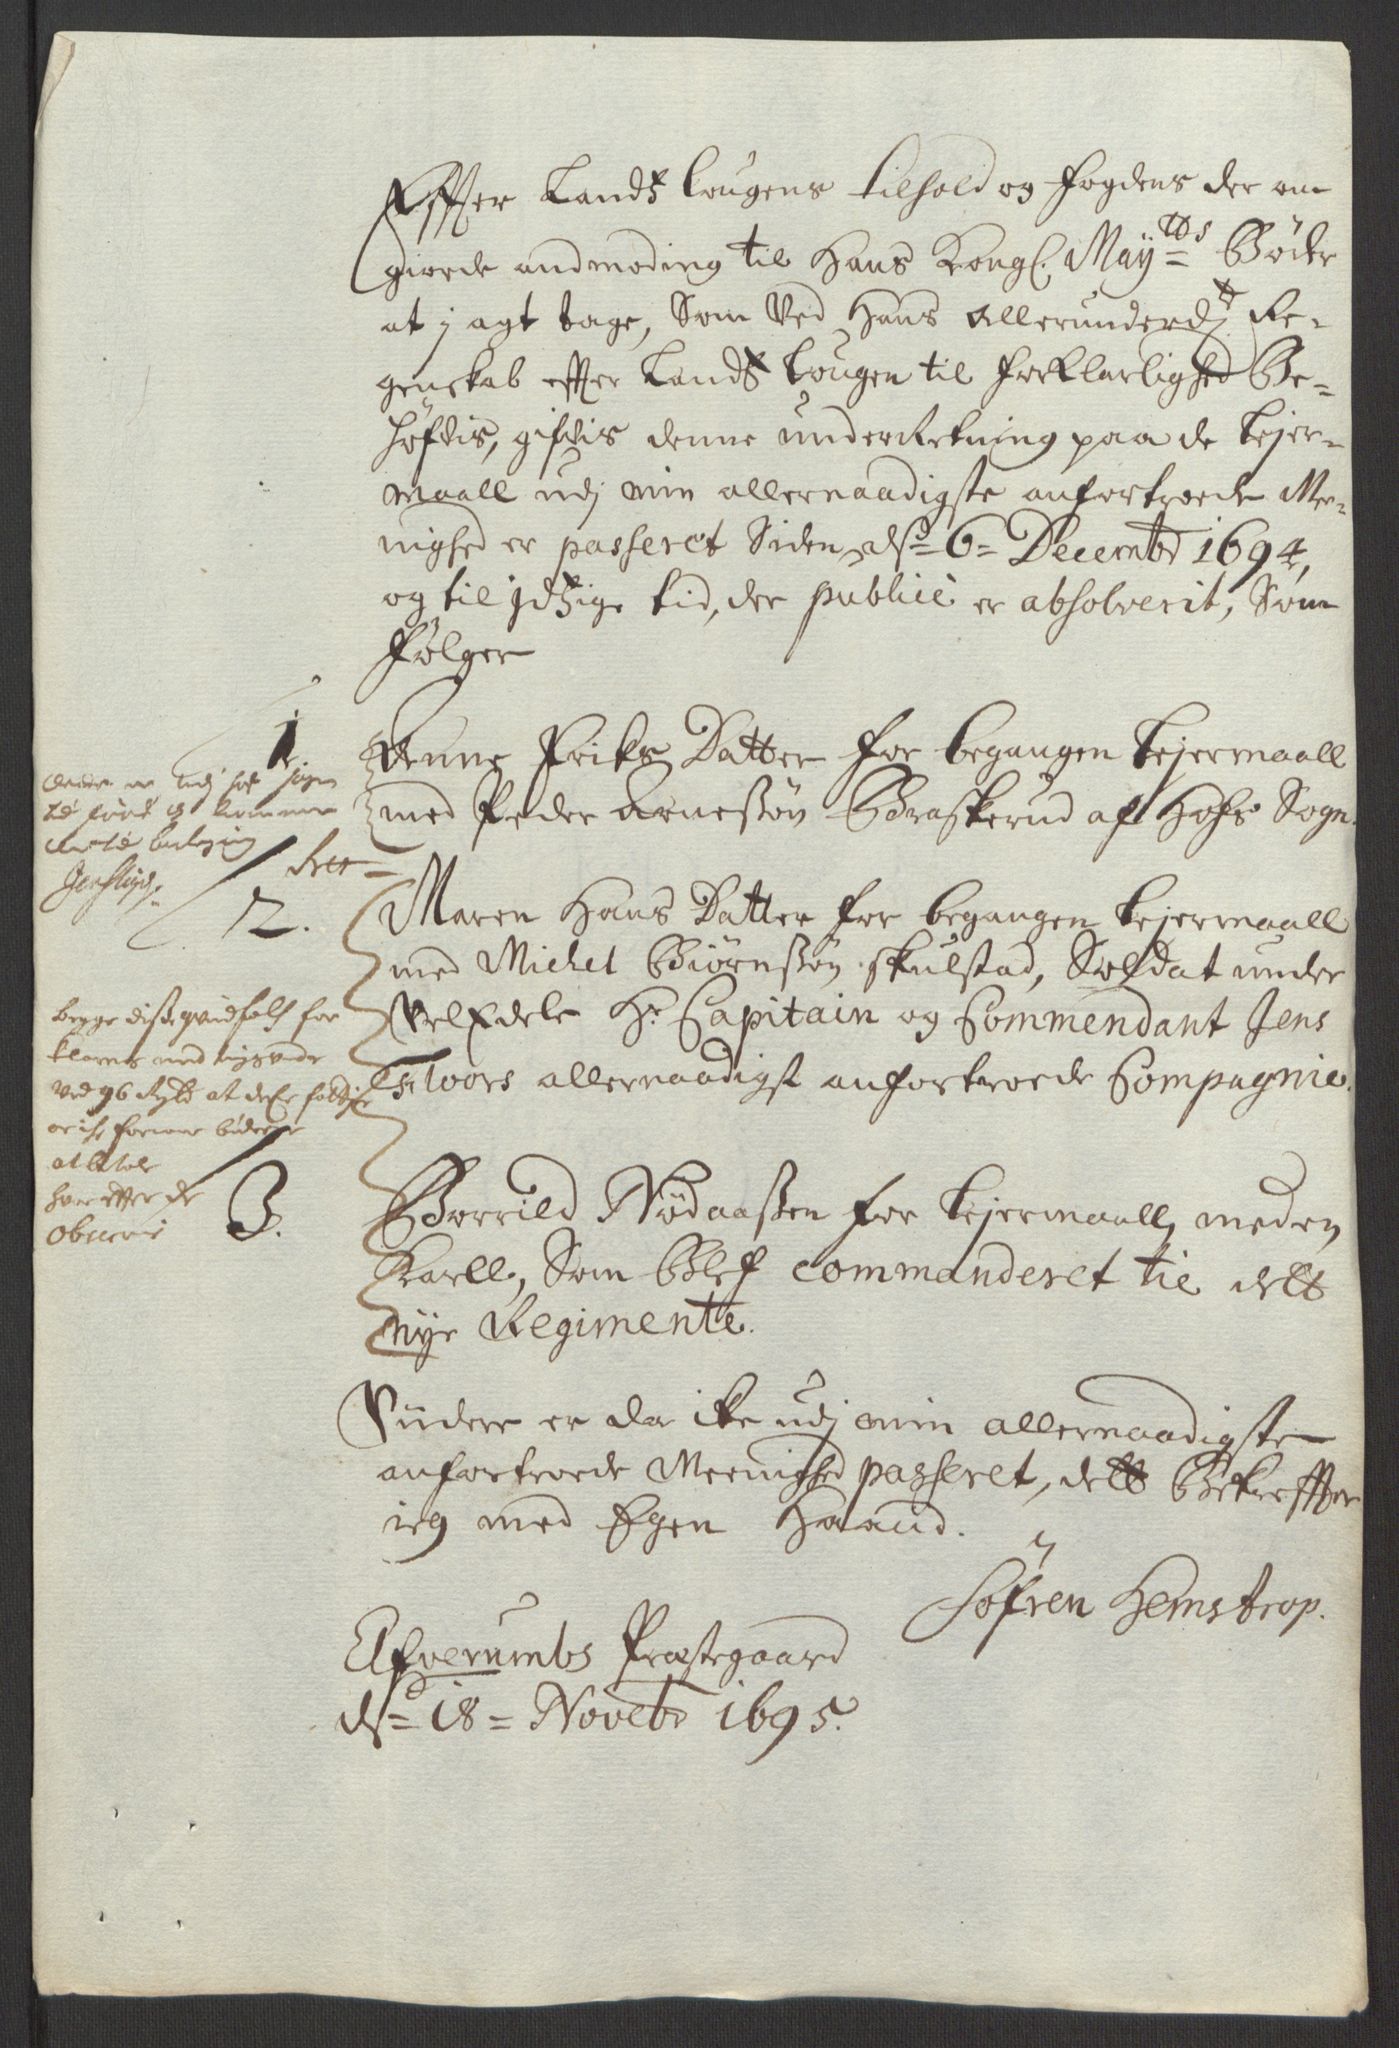 Effter Lands Lougens tilhold og fogdens der om
giorde andmoding til Hans Kongl. Mayˢ Bøder
at j agt tage, Som Ved Hans allerunderd: Re-
genskab effter Lands Lougen til forklarlighed Be-
høfvis, gifvis denne underRetning paa de Lejer-
maall udj min allernaadigste anfortroede Me-
nighed er passeret Siden dn 6 Decembr 1694,
og til jdtzige tid, der publicè er absolverit, Som
følger
1
Anne Eriks Datter for begangen Lejermaall
med Peder Arneßøn Braskerud af Hofs Sogn.
2.
Maren Hans Datter for begangen Lejermaall
med Michel Biørnßøn Skulstad, Soldat under
VelEdele Hr Capitain og Commendant Jens
Sloors allernaadigst anfortroede Compagnie.
begge disse qvindfolk for
klaris med tingsvidne
ved 96 at
er icke formue bøderne
at betale
hver effter de
3.
Borrild Nødaaßen for Lejermaall med en
Karll, Som Blef commanderet til dett
nye Regimente.
Viidere er da icke udj min allernaadigste
anfortroede Meenighed passeret, dett Bekreffter
ieg med Egen Haand.
Søfren Hemstrop.
Elfverumbs Præstegaard
dn 18 Novebr 1695.